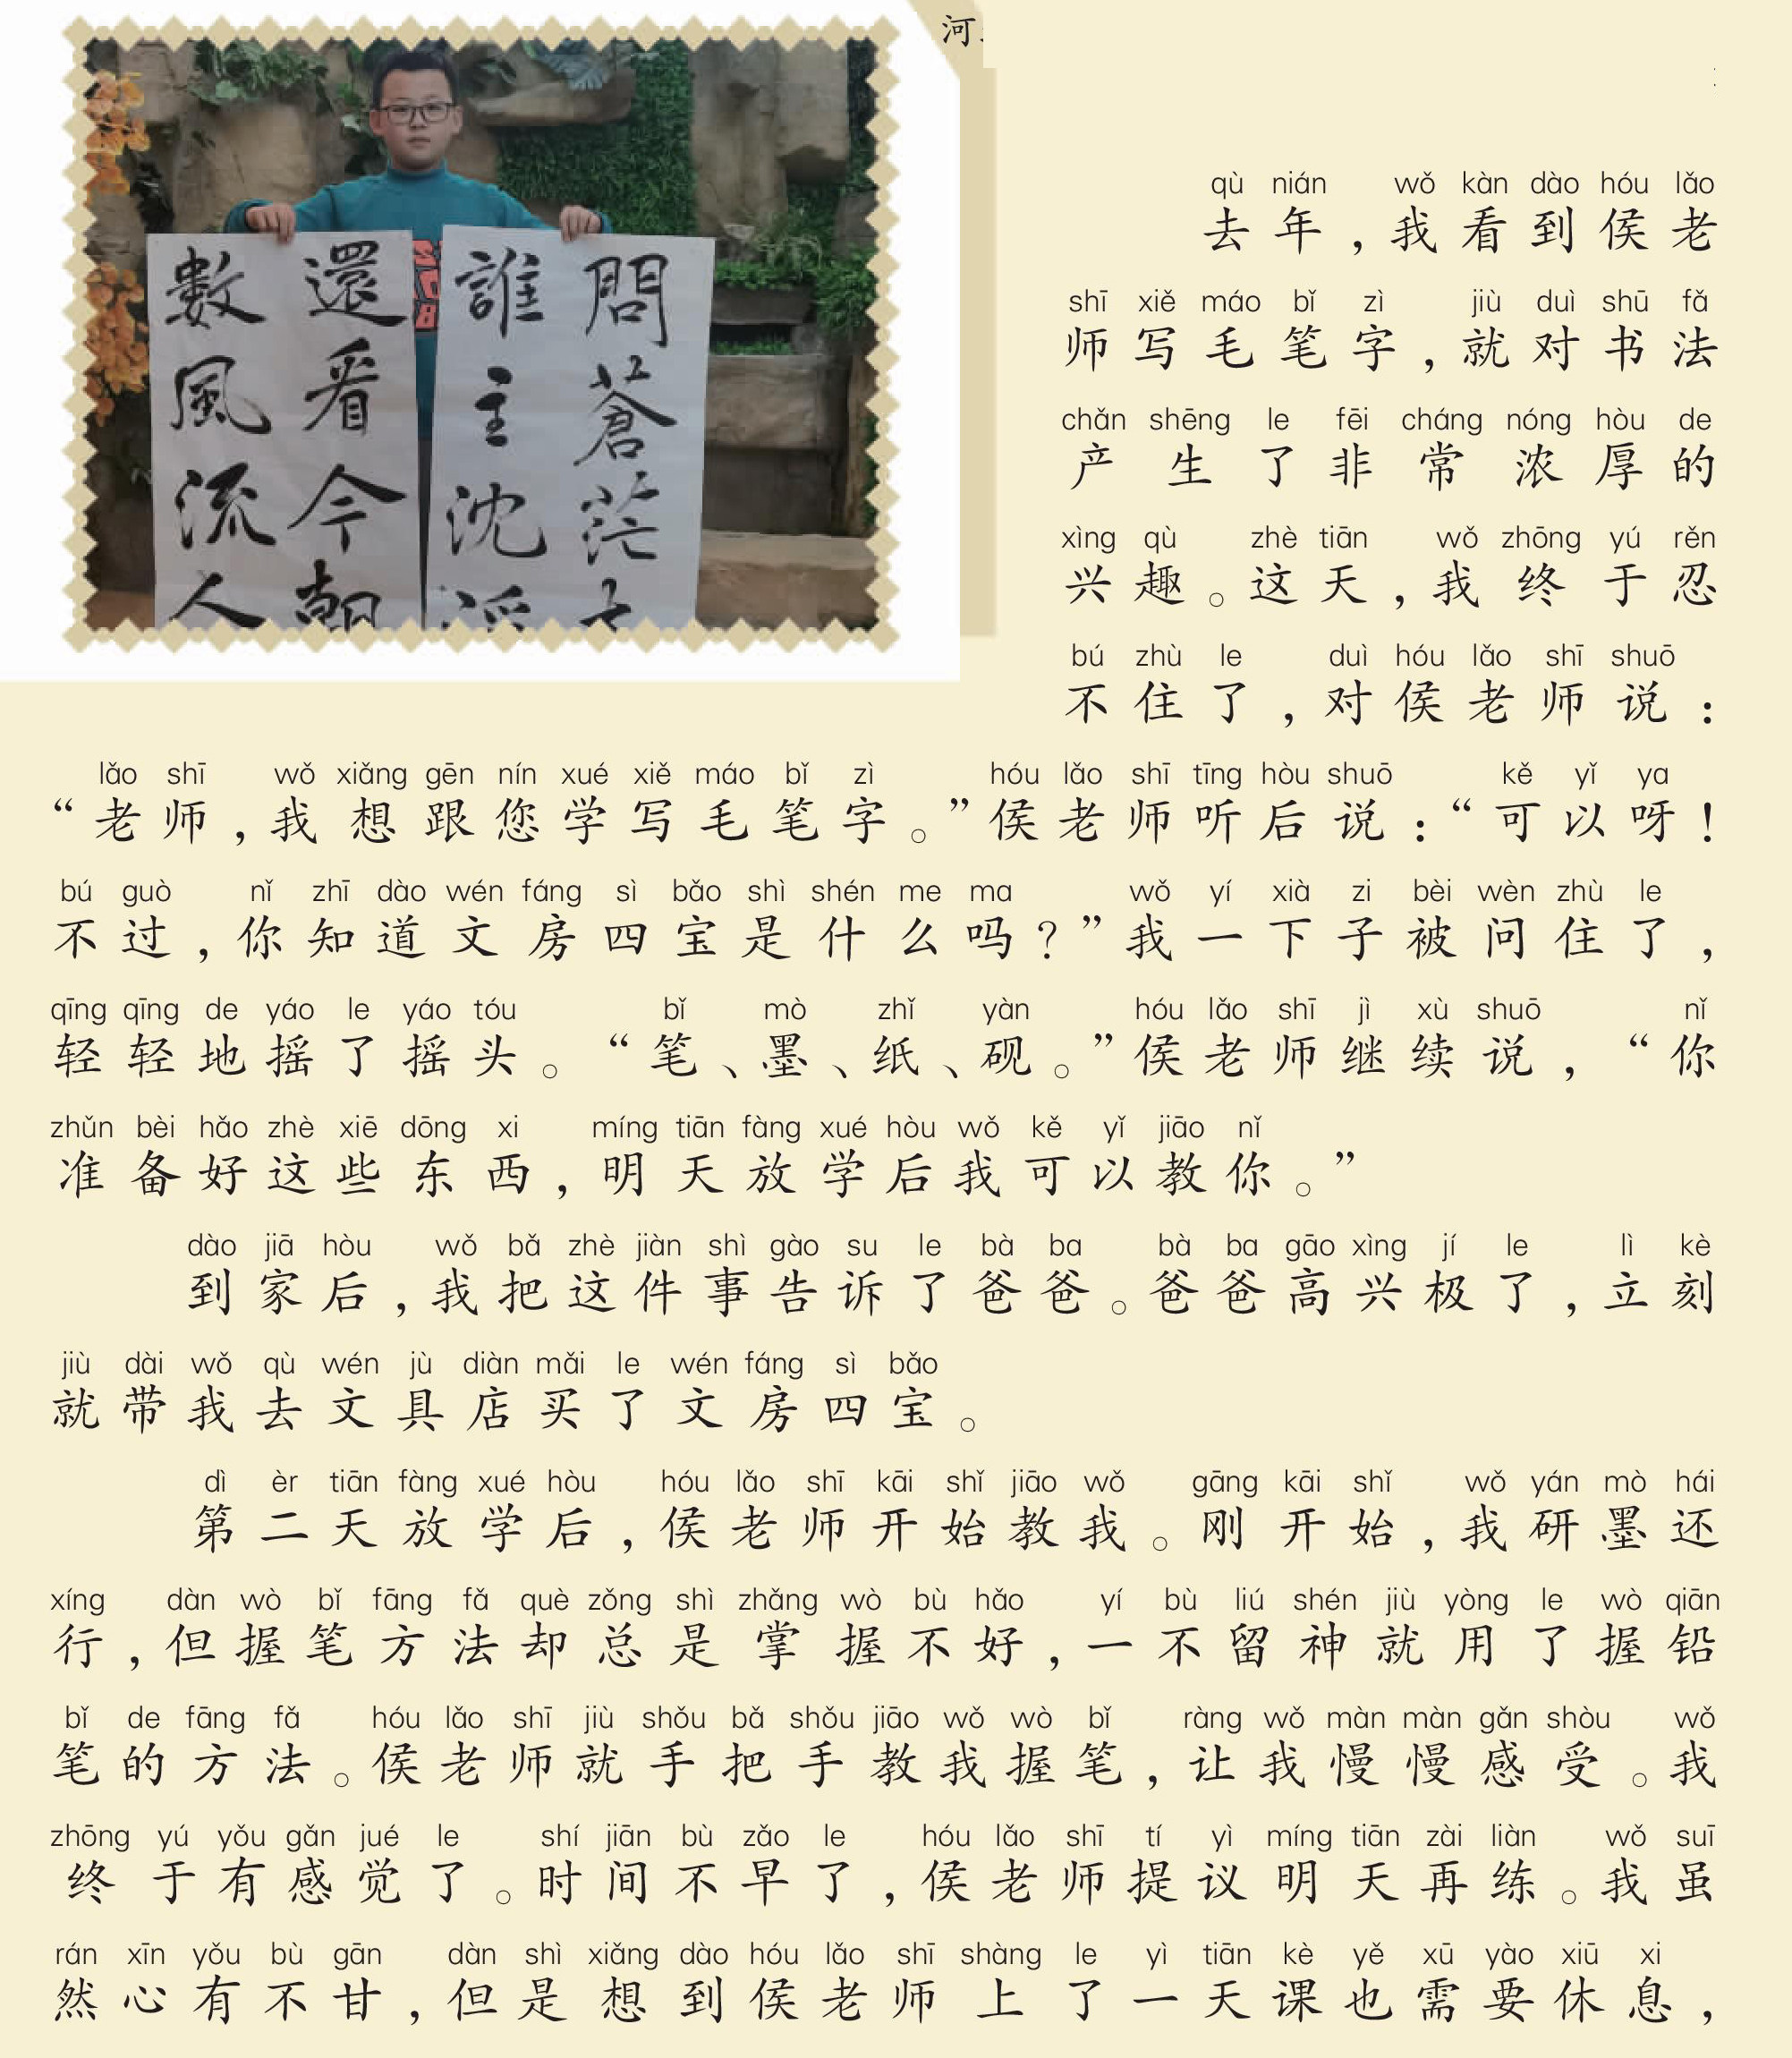 河
問蒼茫
誰主沈
還看今朝
數風流人
qù nián wǒ kàn dào hóu lǎo
去年，我看到侯老
shī xiě máo bǐ zì jiù duì shū fǎ
师写毛笔字，就对书法
chǎn shēng le fēi cháng nóng hòu de
产生了非常浓厚的
xìng qù zhè tiān wǒ zhōng yú rěn
兴趣。这天，我终于忍
bú zhù le duì hóu lǎo shī shuō
不住了，对侯老师说：
lǎo shī wǒ xiǎng gēn nín xué xiě máo bǐ zì hóu lǎo shī tīng hòu shuō kě yǐ ya
“老师，我想跟您学写毛笔字。”侯老师听后说：“可以呀！
bú guò nǐ zhī dào wén fáng sì bǎo shì shén me ma wǒ yí xià zi bèi wèn zhù le
不过，你知道文房四宝是什么吗？”我一下子被问住了，
qīng qīng de yáo le yáo tóu bǐ mò zhǐ yàn hóu lǎo shī jì xù shuō nǐ
轻轻地摇了摇头。“笔、墨、纸、砚。”侯老师继续说，“你
zhǔn bèi hǎo zhè xiē dōng xi míng tiān fàng xué hòu wǒ kě yǐ jiāo nǐ
准备好这些东西，明天放学后我可以教你。”
dào jiā hòu wǒ bǎ zhè jiàn shì gào su le bà ba bà ba gāo xìng jí le lì kè
到家后，我把这件事告诉了爸爸。爸爸高兴极了，立刻
jiù dài wǒ qù wén jù diàn mǎi le wén fáng sì bǎo
就带我去文具店买了文房四宝。
dì èr tiān fàng xué hòu hóu lǎo shī kāi shǐ jiāo wǒ gāng kāi shǐ wǒ yán mò hái
第二天放学后，侯老师开始教我。刚开始，我研墨还
xíng dàn wò bǐ fāng fǎ què zǒng shì zhǎng wò bù hǎo yí bù liú shén jiù yòng le wò qiān
行，但握笔方法却总是掌握不好，一不留神就用了握铅
bǐ de fāng fǎ hóu lǎo shī jiù shǒu bǎ shǒu jiāo wǒ wò bǐ ràng wǒ màn màn gǎn shòu wǒ
笔的方法。侯老师就手把手教我握笔，让我慢慢感受。我
zhōng yú yǒu gǎn jué le shí jiān bù zǎo le hóu lǎo shī tí yì míng tiān zài liàn wǒ suī
终于有感觉了。时间不早了，侯老师提议明天再练。我虽
rán xīn yǒu bù gān dàn shì xiǎng dào hóu lǎo shī shàng le yì tiān kè yě xū yào xiū xi
然心有不甘，但是想到侯老师上了一天课也需要休息，